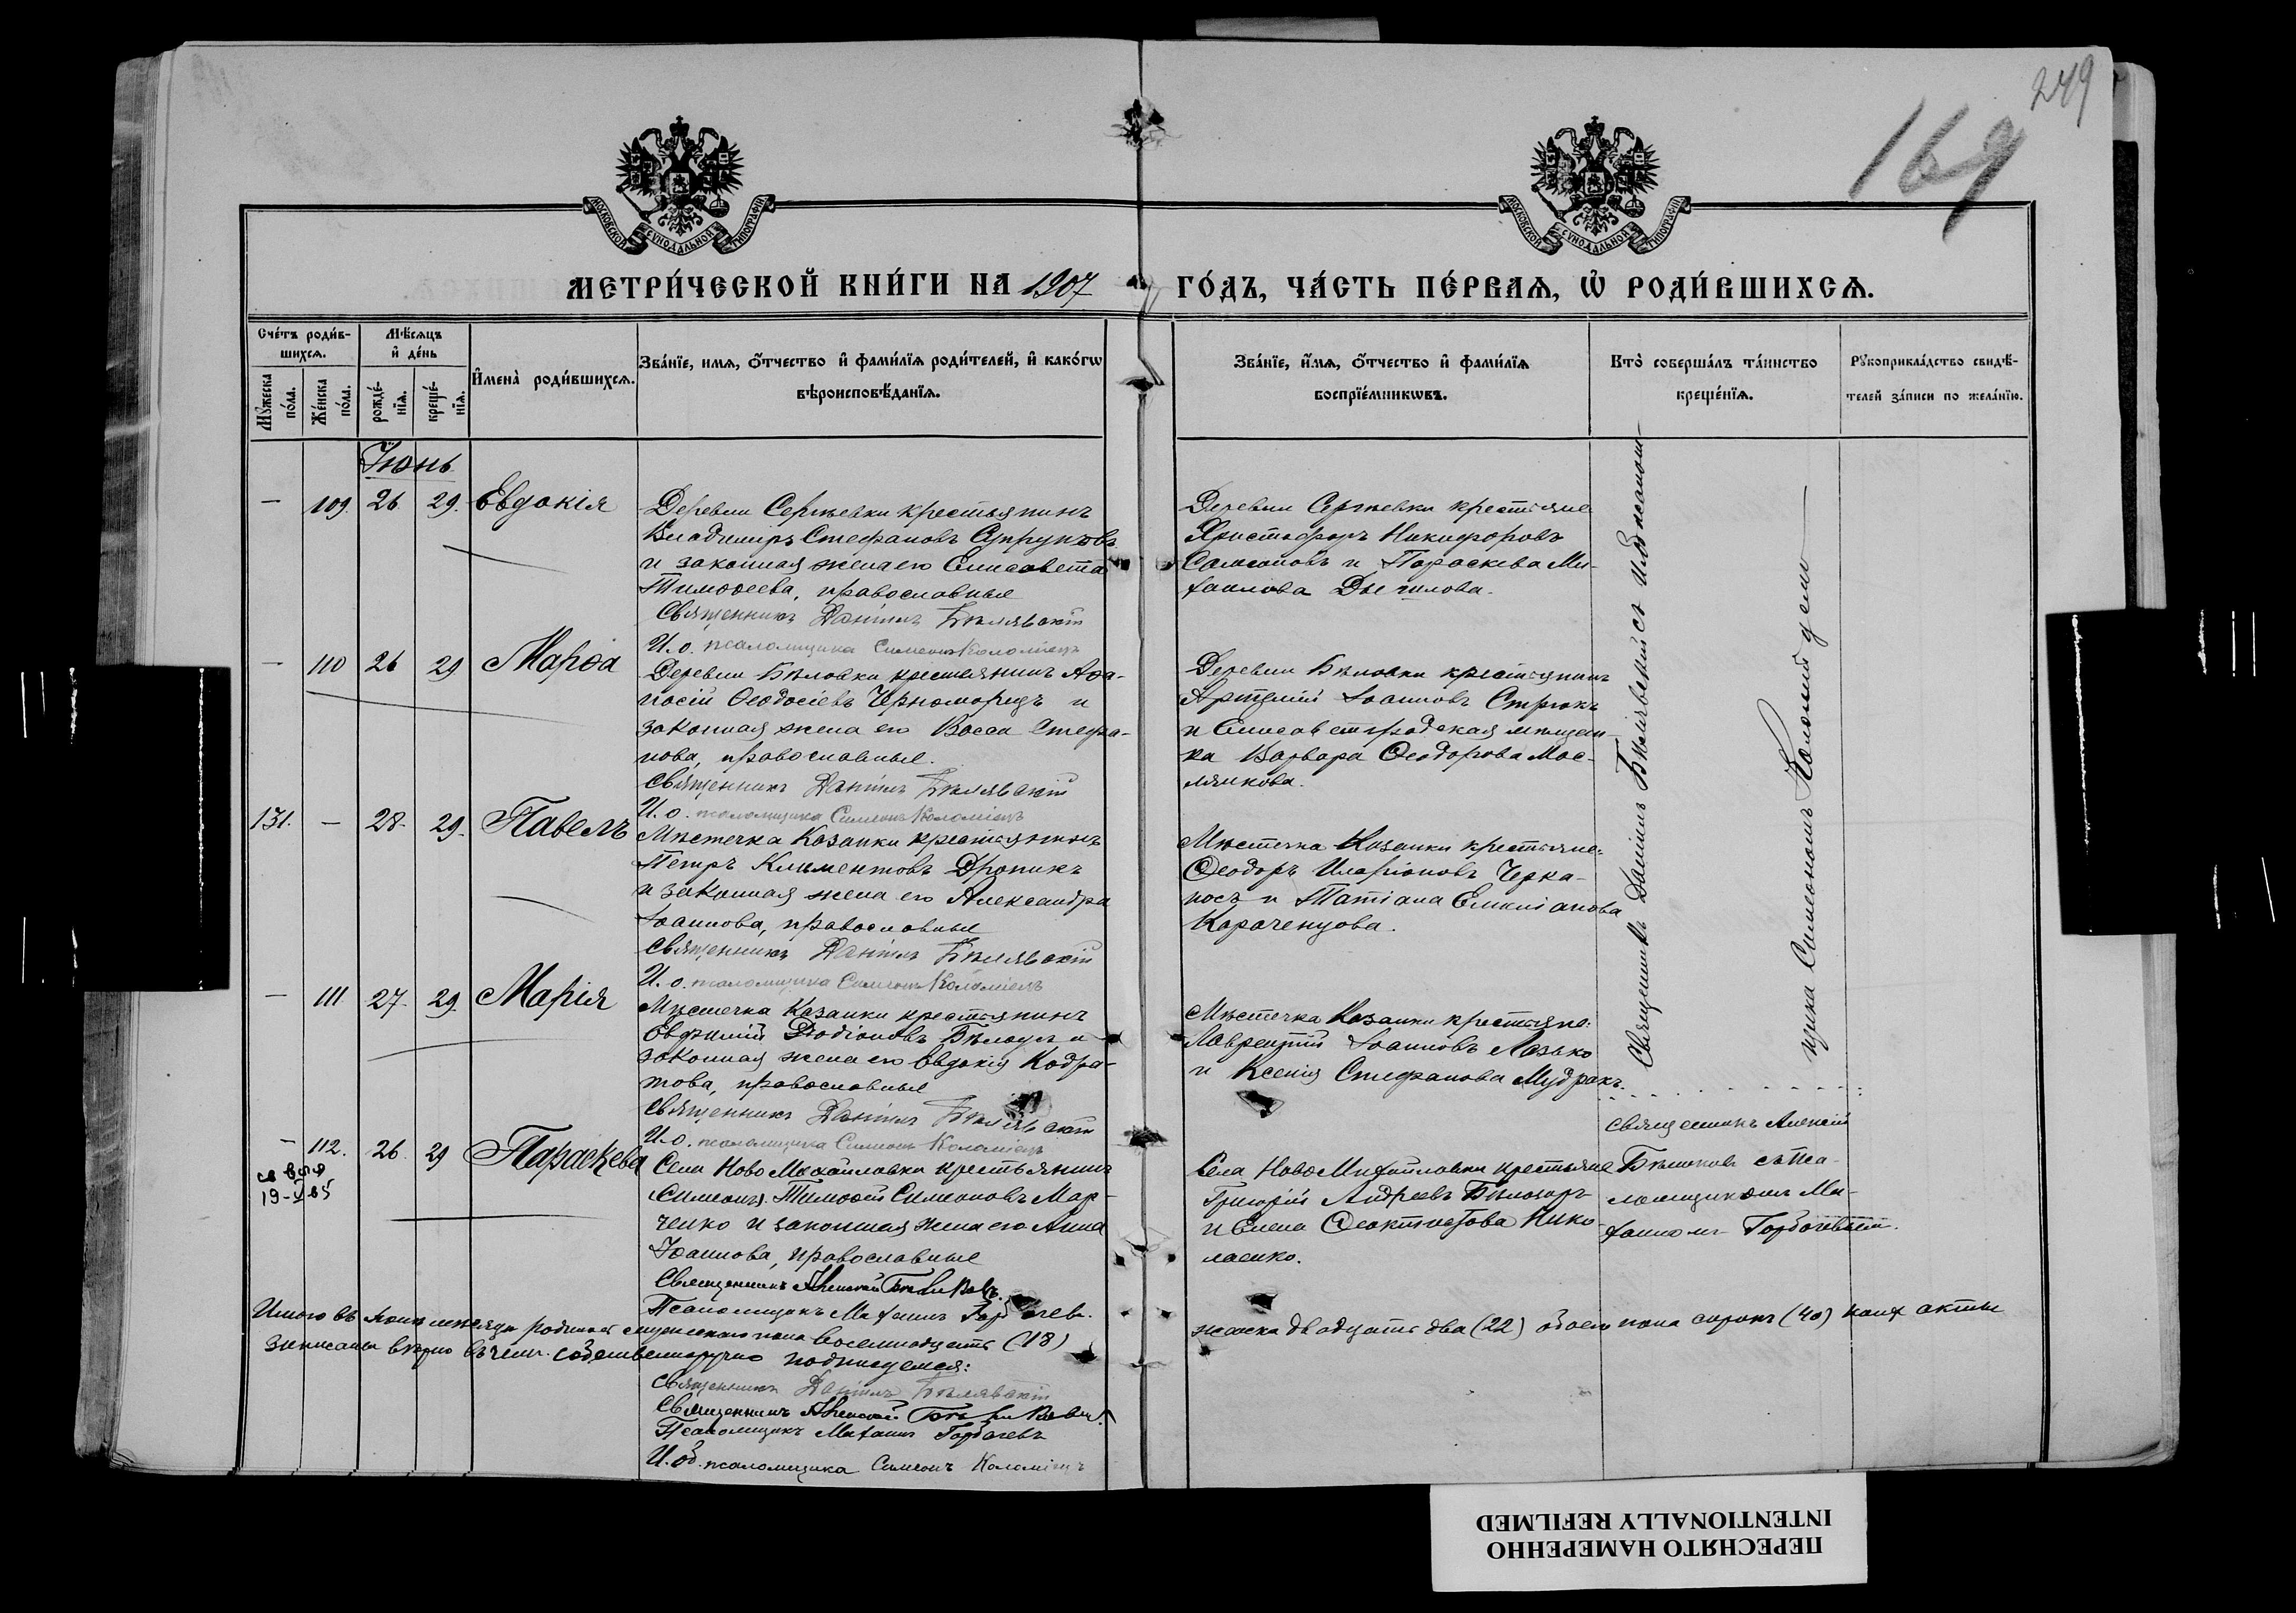 249
169
МОСКОВСКОЙ СѴНОДАЛЬНОЙ ТИПОГРАФІИ
МОСКОВСКОЙ СѴНОДАЛЬНОЙ ТИПОГРАФІИ
МЕТРИ́ЧЕСКОЙ КНИ́ГИ НА 1907 ГО́ДЪ, ЧА́СТЬ ПЕ́РВАѦ, Ѡ҆ РОДИ́ВШИХСѦ.
Сче́тъ роди́в-
шихсѧ.
Мѣ́сѧцъ
и҆ де́нь
Мꙋжеска по́ла.
Же́нска по́ла.
рожде́-
нїѧ.
креще́-
нїѧ.
И҆мена̀ роди́вшихсѧ.
Зва́нїе, имѧ, ѻ҆́тчество и҆ фами́лїѧ роди́телей, и҆ како́гѡ
вѣроисповѣ́данїѧ.
Зва́нїе, и҆́мѧ, ѻ҆́тчество и҆ фами́лїѧ
воспрїе́мникѡвъ.
Кто̀ соверша́лъ та́инство
креще́нїѧ.
Рꙋкоприкла́дство свидѣ́-
телей за́писи по жела́нїю.
Іюнь
— 109. 26 29. Евдокія
Деревни Сергѣевки крестьянинъ
Владимиръ Стефановъ Супруновъ
и законная жена его Елисавета
Тимоѳеева, православные
Священникъ Даніилъ Бѣлявскій
И. о. псаломщика Симеонъ Коломіецъ
Деревни Сергѣевки крестьяне
Христофоръ Никифоровъ
Самсоновъ и Параскева Ми-
хаилова
— 110 26 29 Марѳа
Деревни Бѣловки крестьянинъ Аѳа-
насій Ѳеодосіевъ Черноморецъ и
законная жена его Васса Стефа-
нова, православные.
Священникъ Даніилъ Бѣлявскій
И. о. псаломщика Симеонъ Коломіецъ
Деревни Бѣловки крестьянинъ
Артемій Іоанновъ Стрюкъ
и Елисаветградская мѣщан-
ка Варвара Ѳеодорова Мас-
лянкова.
131. — 28. 29. Павелъ
Мѣстечка Казанки крестьянинъ
Петръ Климентовъ Дропикъ
и законная жена его Александра
Іоаннова, православные
Священникъ Даніилъ Бѣлявскій
И. о. псаломщика Симеонъ Коломіецъ
Мѣстечка Казанки крестьяне:
Ѳеодоръ Иларіоновъ Черка-
носъ и Татіана Емиліанова
Караченцова.
— 111 27. 29. Марія
Мѣстечка Казанки крестьянинъ
Евѳимій Родіоновъ Бѣлоусъ и
законная жена его Евдокія Кодра-
това, православные
Священникъ Даніилъ Бѣлявскій
И. о. псаломщика Симеонъ Коломіецъ
Мѣстечка Казанки крестьяне:
Лаврентій Іоанновъ Лазько
и Ксенія Стефанова Мудракъ.
Священникъ Даніилъ Бѣлявскій съ и. об. псалом-
щика Симеономъ Коломійцемъ
— 112. 26. 29 Параскева
19-V 85
Села Ново Михайловки крестьянинъ
Симеонъ Тимоѳей Симеоновъ Мар-
ченко и законная жена его Анна
Іоаннова, православные
Священникъ Алексій Бѣликовъ.
Псаломщикъ Михаилъ Горбачевъ.
Села Ново Михайловки крестьяне
Григорій Андреевъ Бѣлозоръ
и Елена Ѳеоктистова Нико-
лаенко.
Священникъ Алексій
Бѣликовъ съ пса-
ломщикомъ Ми-
хаиломъ Горбачевымъ.
Итого въ Іюнѣ мѣсяцѣ родилось мужескаго пола восемнадцать (18)
женска двадцать два (22) обоего пола сорокъ (40) коихъ акты
записаны вѣрно въ чемъ собственноручно подписуемся:
Священникъ Даніилъ Бѣлявскій
Священникъ Алексій Бѣликовъ.
Псаломщикъ Михаилъ Горбачевъ
И. об. псаломщика Симеонъ Коломіецъ
ПЕРЕСНЯТО НАМЕРЕННО
INTENTIONALLY REFILMED